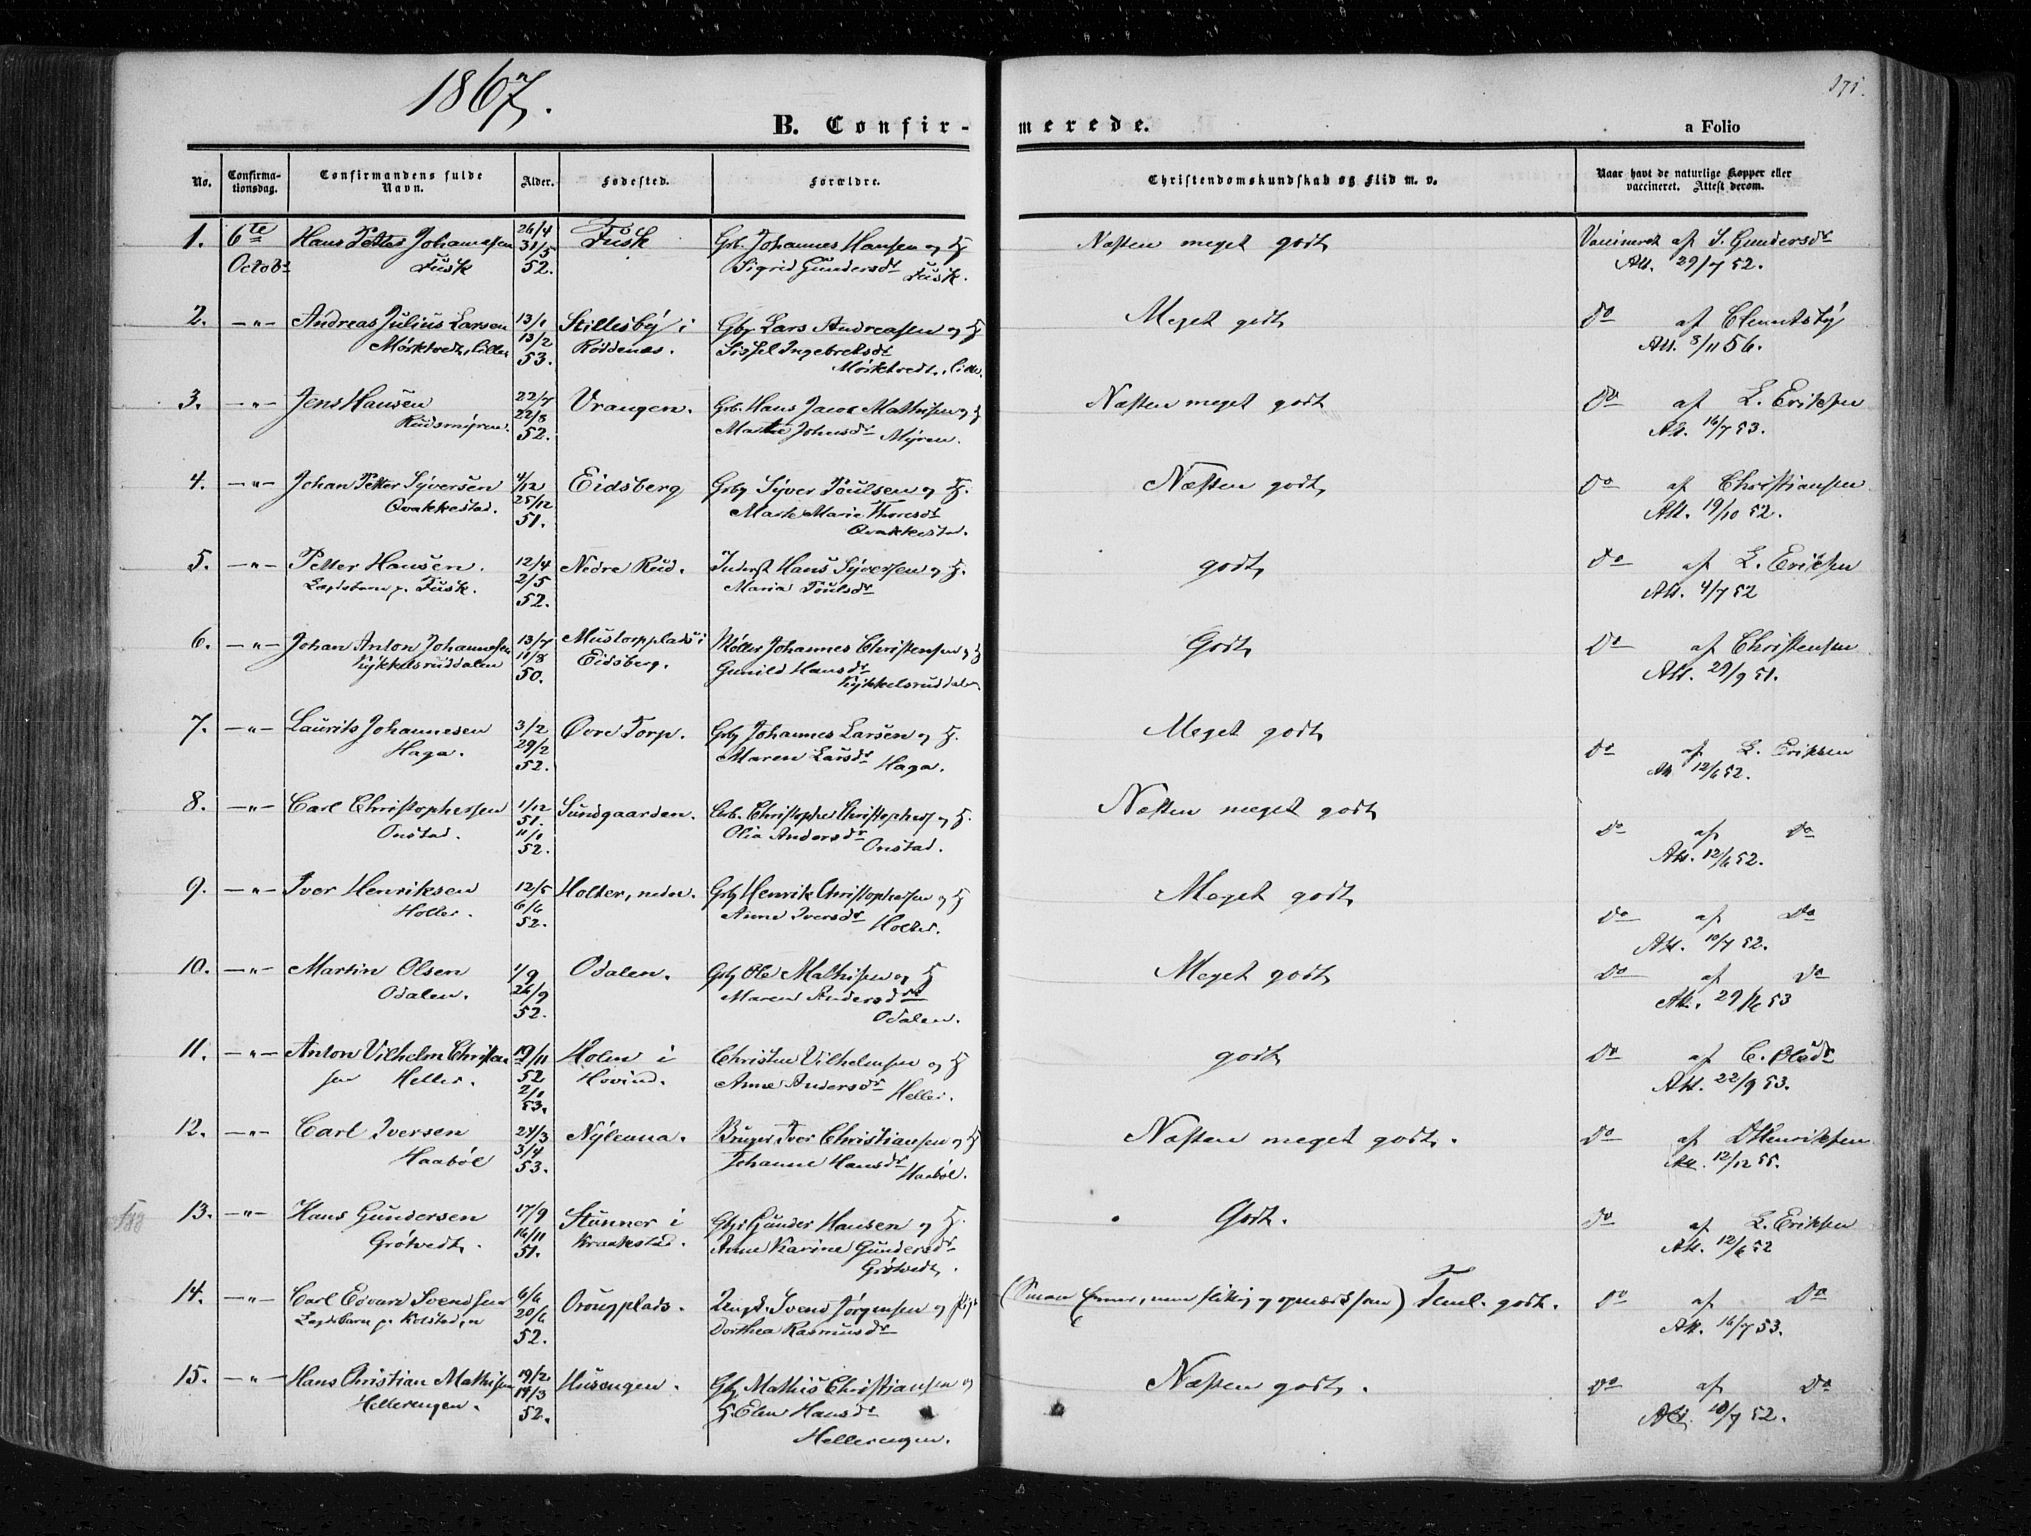 1867.
171.
B. Confir-merede.
a Folio
No. Confirmationsdag. Confirmandens fulde Navn. Alder. Fødested. Forældre. Christendomskundskab og Flid m. v. Naar havt de naturlige Kopper eller vaccineret. Attest derom.
1. 6te Octobr Hans Petter Johannesen Fusk 26/4 31/5 52. Fusk Grb. Johannes Hansen og H. Sigrid Gundersdr Fusk. Næsten meget godt Vaccineret af S. Gundersdr Att. 29/7 52.
2. —"— Andreas Julius Larsen Mørktvedt, lille 13/1 13/2 53. Stillesby i Röddenæs. Gbr Lars Andreasen og H Sissel Ingebretsdr Mørktvedt, lille. Meget godt Do af Clemetsby Att. 8/11 56.
3. —"— Jens Hansen Rudsmyren. 22/7 22/8 52. Vrangen. Grb. Hans Jacob Mathisen og H Marte Johnsdr Myren. Næsten meget godt Do af L. Eriksen Att. 16/7 53.
4. —"— Johan Petter Syversen Qvakkestad. 4/12 25/12 51. Eidsberg Grbr Syver Poulsen og H. Marte Marie Thoresdr Qvakkestad. Næsten godt Do af Christiansen Att. 19/10 52.
5. —"— Petter Hansen. Lægdsbarn p. Fusk. 12/4 2/5 52. Nedre Rud. Inderst Hans Syversen og H. Maria Poulsdr godt Do af L. Eriksen Att. 4/7 52
6. —"— Johan Anton Johannesen Kykkelsruddalen 13/7 11/8 50. Mustorpplads i Eidsberg. Møller Johannes Christensen og H Gunild Hansdr Kykkelsruddalen Godt Do af Christensen Att. 29/9 51.
7. —"— Laurits Johannesen Haga. 3/2 29/2 52. Övre Torp. Grbr Johannes Larsen og H. Maren Larsdr Haga. Meget godt Do af L. Eriksen Att 12/6 52.
8. —"— Carl Christophersen Onstad. 1/12 51. 11/1 52. Sundgaarden. Grb. Christopher Christophers og H. Olia Andersdr Onstad. Næsten meget godt Do af Do Att. 12/6 52.
9. —"— Iver Henriksen Holter. 12/5 6/6 52. Holter, neder. Grbr Henrik Christophersen og H Anne Iversdr Holter. Meget godt Do af Do Att. 10/7 52.
10. —"— Martin Olsen Odalen. 1/9 26/9 52. Odalen. Grbr Ole Mathisen og H Maren Andersdr Odalen. Meget godt Do af Do Att. 29/6 53
11. —"— Anton Vilhelm Christensen Heller. 19/11 52 2/1 53. Holen i Hovind. Christen Vilhelmsen og H Anne Andersdr Heller. godt Do af C. Olsdr Att. 22/9 53.
12. —"— Carl Iversen Haaböl 24/3 3/4 53. Nylenna. Bruger Iver Christiansen og H Johanne Hansdr Haaböl. Næsten meget godt. Do af D Henriksen Att. 12/12 55.
13. —"— Hans Gundersen Grötvedt. 17/9 16/11 51. Stunner i Kraakstad. Gbr Gunder Hansen og H. Anne Karine Gundersdr Grötvedt. Godt. Do af L. Eriksen Att. 12/6 52
14. —"— Carl Edvard Svendsen Lægdsbarn p. Kolstad, n 6/6 20/6 52. Orougplads. Ungk. Svend Jørgensen og Pige Dorthea Rasmusdr (Smaa Evner, men flittig og opmærksom) Teml. godt. Do af Do Att. 16/7 53.
15. —"— Hans Christian Mathisen Hellerengen. 19/2 14/3 52. Husengen. Gbr Mathis Christiansen og H. Elen Hansdr Hellerengen. Næsten godt. Do af Do Att. 10/7 52.